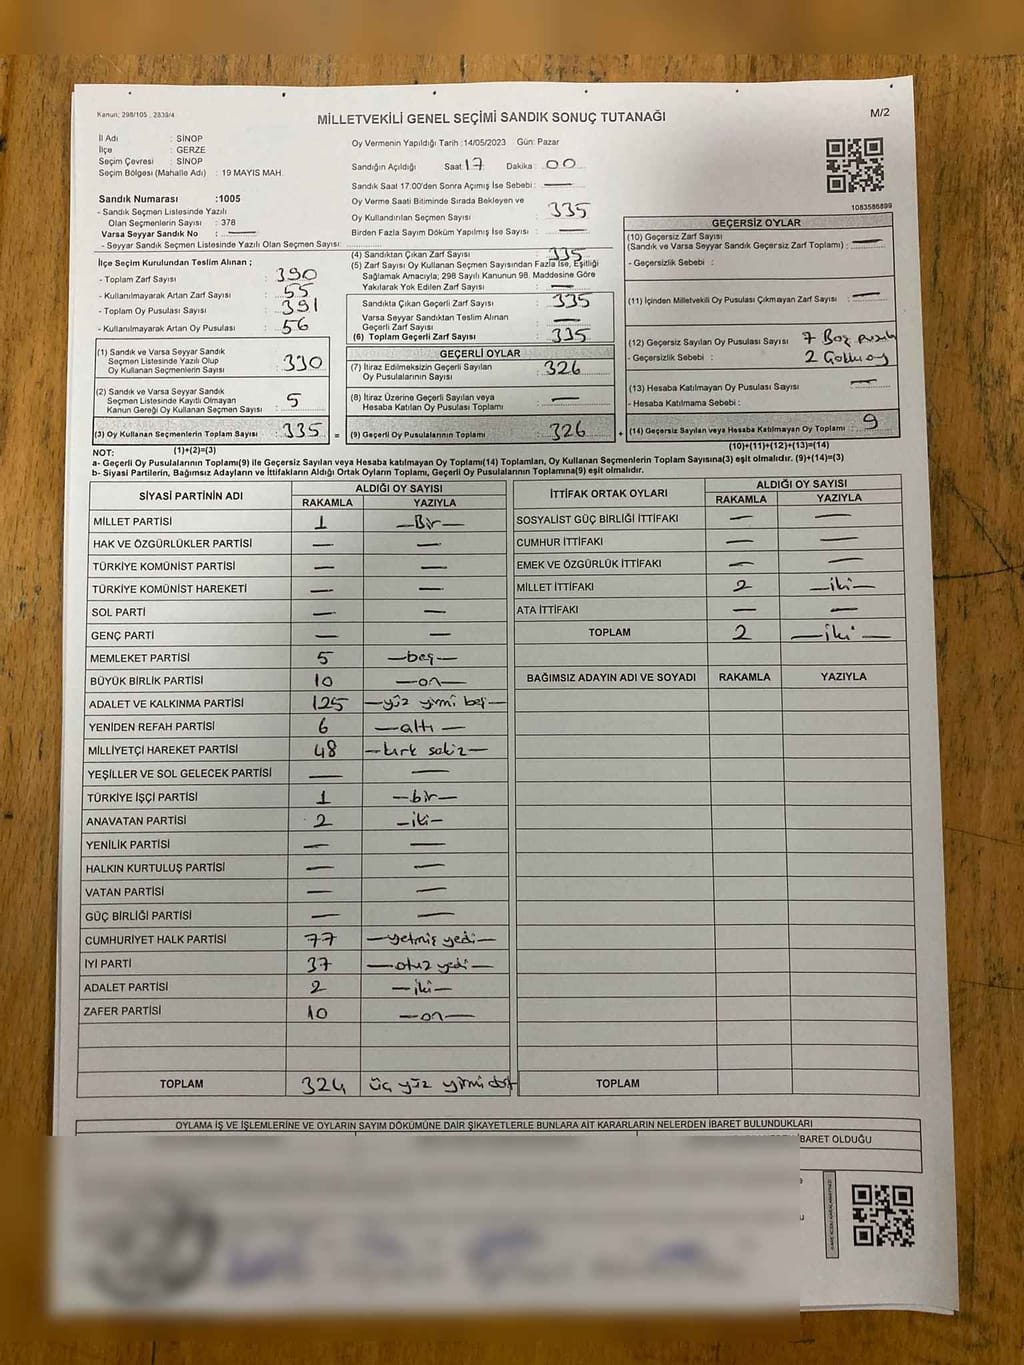 Kanun: 298/105 , 2839/4
MİLLETVEKİLİ GENEL SEÇİMİ SANDIK SONUÇ TUTANAĞI
M/2
İl Adı : SİNOP
İlçe : GERZE
Seçim Çevresi : SİNOP
Seçim Bölgesi (Mahalle Adı) : 19 MAYIS MAH.
Sandık Numarası :1005
- Sandık Seçmen Listesinde Yazılı
Olan Seçmenlerin Sayısı : 378
Varsa Seyyar Sandık No : —
- Seyyar Sandık Seçmen Listesinde Yazılı Olan Seçmen Sayısı:
Oy Vermenin Yapıldığı Tarih :14/05/2023 Gün: Pazar
Sandığın Açıldığı Saat 17 Dakika : 00
Sandık Saat 17:00'den Sonra Açımış İse Sebebi : —
Oy Verme Saati Bitiminde Sırada Bekleyen ve
Oy Kullandırılan Seçmen Sayısı : 335
Birden Fazla Sayım Döküm Yapılmış İse Sayısı : —
1083586899
İlçe Seçim Kurulundan Teslim Alınan ;
- Toplam Zarf Sayısı : 390
- Kullanılmayarak Artan Zarf Sayısı : 55
- Toplam Oy Pusulası Sayısı : 391
- Kullanılmayarak Artan Oy Pusulası : 56
(1) Sandık ve Varsa Seyyar Sandık
Seçmen Listesinde Yazılı Olup
Oy Kullanan Seçmenlerin Sayısı : 330
(2) Sandık ve Varsa Seyyar Sandık
Seçmen Listesinde Kayıtlı Olmayan
Kanun Gereği Oy Kullanan Seçmen Sayısı : 5
(3) Oy Kullanan Seçmenlerin Toplam Sayısı : 335 =
(4) Sandıktan Çıkan Zarf Sayısı : 335
(5) Zarf Sayısı Oy Kullanan Seçmen Sayısından Fazla İse, Eşitliği
Sağlamak Amacıyla; 298 Sayılı Kanunun 98. Maddesine Göre
Yakılarak Yok Edilen Zarf Sayısı : —
Sandıkta Çıkan Geçerli Zarf Sayısı : 335
Varsa Seyyar Sandıktan Teslim Alınan
Geçerli Zarf Sayısı : —
(6) Toplam Geçerli Zarf Sayısı : 335
GEÇERLİ OYLAR
(7) İtiraz Edilmeksizin Geçerli Sayılan
Oy Pusulalarının Sayısı : 326
(8) İtiraz Üzerine Geçerli Sayılan veya
Hesaba Katılan Oy Pusulası Toplamı : —
(9) Geçerli Oy Pusulalarının Toplamı : 326 +
GEÇERSİZ OYLAR
(10) Geçersiz Zarf Sayısı
(Sandık ve Varsa Seyyar Sandık Geçersiz Zarf Toplamı) : —
- Geçersizlik Sebebi :
(11) İçinden Milletvekili Oy Pusulası Çıkmayan Zarf Sayısı : —
(12) Geçersiz Sayılan Oy Pusulası Sayısı : 7 Boş pusula
- Geçersizlik Sebebi : 2 Çoklu oy
(13) Hesaba Katılmayan Oy Pusulası Sayısı : —
- Hesaba Katılmama Sebebi :
(14) Geçersiz Sayılan veya Hesaba Katılmayan Oy Toplamı : 9
NOT: (1)+(2)=(3) (10)+(11)+(12)+(13)=(14)
a- Geçerli Oy Pusulalarının Toplamı(9) ile Geçersiz Sayılan veya Hesaba katılmayan Oy Toplamı(14) Toplamları, Oy Kullanan Seçmenlerin Toplam Sayısına(3) eşit olmalıdır. (9)+(14)=(3)
b- Siyasi Partilerin, Bağımsız Adayların ve İttifakların Aldığı Ortak Oyların Toplamı, Geçerli Oy Pusulalarının Toplamına(9) eşit olmalıdır.
SİYASİ PARTİNİN ADI ALDIĞI OY SAYISI
RAKAMLA YAZIYLA
MİLLET PARTİSİ 1 —Bir—
HAK VE ÖZGÜRLÜKLER PARTİSİ — —
TÜRKİYE KOMÜNİST PARTİSİ — —
TÜRKİYE KOMÜNİST HAREKETİ — —
SOL PARTİ — —
GENÇ PARTİ — —
MEMLEKET PARTİSİ 5 —beş—
BÜYÜK BİRLİK PARTİSİ 10 —on—
ADALET VE KALKINMA PARTİSİ 125 —yüz yirmi beş—
YENİDEN REFAH PARTİSİ 6 —altı—
MİLLİYETÇİ HAREKET PARTİSİ 48 —kırk sekiz—
YEŞİLLER VE SOL GELECEK PARTİSİ — —
TÜRKİYE İŞÇİ PARTİSİ 1 —bir—
ANAVATAN PARTİSİ 2 —iki—
YENİLİK PARTİSİ — —
HALKIN KURTULUŞ PARTİSİ — —
VATAN PARTİSİ — —
GÜÇ BİRLİĞİ PARTİSİ — —
CUMHURİYET HALK PARTİSİ 77 —yetmiş yedi—
İYİ PARTİ 37 —otuz yedi—
ADALET PARTİSİ 2 —iki—
ZAFER PARTİSİ 10 —on—
TOPLAM 324 üç yüz yirmi dört
İTTİFAK ORTAK OYLARI ALDIĞI OY SAYISI
RAKAMLA YAZIYLA
SOSYALİST GÜÇ BİRLİĞİ İTTİFAKI — —
CUMHUR İTTİFAKI — —
EMEK VE ÖZGÜRLÜK İTTİFAKI — —
MİLLET İTTİFAKI 2 —iki—
ATA İTTİFAKI — —
TOPLAM 2 —iki—
BAĞIMSIZ ADAYIN ADI VE SOYADI RAKAMLA YAZIYLA
TOPLAM
OYLAMA İŞ VE İŞLEMLERİNE VE OYLARIN SAYIM DÖKÜMÜNE DAİR ŞİKAYETLERLE BUNLARA AİT KARARLARIN NELERDEN İBARET BULUNDUKLARI
İBARET OLDUĞU